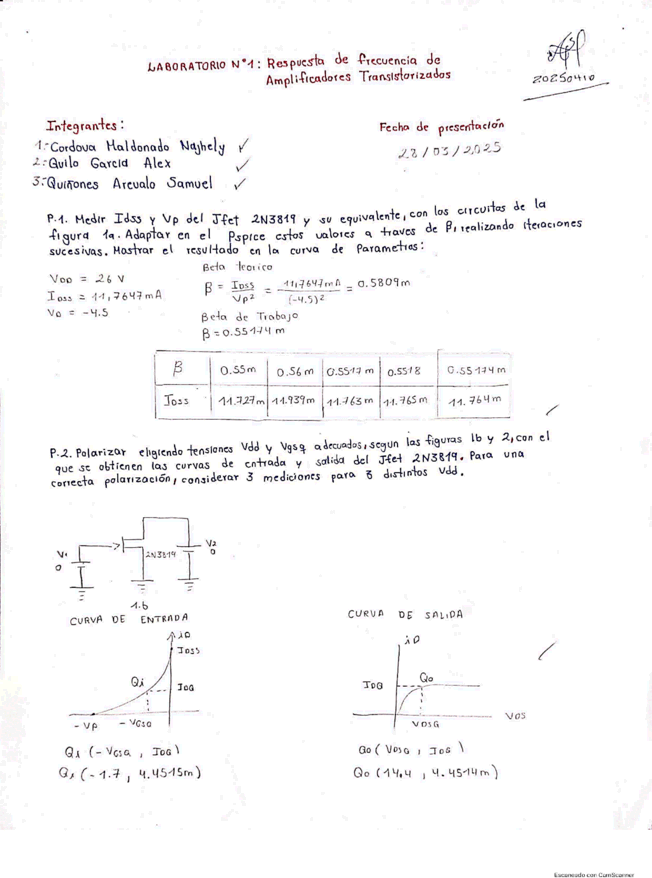 LABORATORIO N°1: Respuesta de frecuencia de
Amplificadores Transistorizados
20250410
Integrantes:
1.- Cordova Maldonado Najhely ✓
2.- Quilo Garcia Alex ✓
3.- Quiñones Arevalo Samuel ✓
Fecha de presentación
28/03/2025
P.1. Medir Idss y Vp del Jfet 2N3819 y su equivalente, con los circuitos de la
figura 1a. Adaptar en el Pspice estos valores a traves de β, realizando iteraciones
sucesivas. Mostrar el resultado en la curva de Parametros:
VDD = 26 V
IDSS = 11,7647mA
Vp = -4.5
Beta teorico
β = IDSS / Vp² = 11,7647mA / (-4.5)² = 0.5809m
Beta de Trabajo
β = 0.55174 m
β | 0.55m | 0.56m | 0.5517m | 0.5518 | 0.55174m
IDSS | 11.727m | 11.939m | 11.763m | 11.765m | 11.764m
P.2. Polarizar eligiendo tensiones Vdd y Vgsq adecuados, segun las figuras 1b y 2, con el
que se obtienen las curvas de entrada y salida del Jfet 2N3819. Para una
correcta polarización, considerar 3 mediciones para 3 distintos Vdd.
V1
0
2N3819
V2
0
1.b
CURVA DE ENTRADA
iD
IDSS
Qi
IDQ
-Vp
-VGSQ
Qi (-VGSQ, IDQ)
Qi (-1.7, 4.4515m)
CURVA DE SALIDA
iD
Qo
IDQ
VDSQ
VDS
Qo (VDSQ, IDQ)
Qo (14.4, 4.4514m)
Escaneado con CamScanner